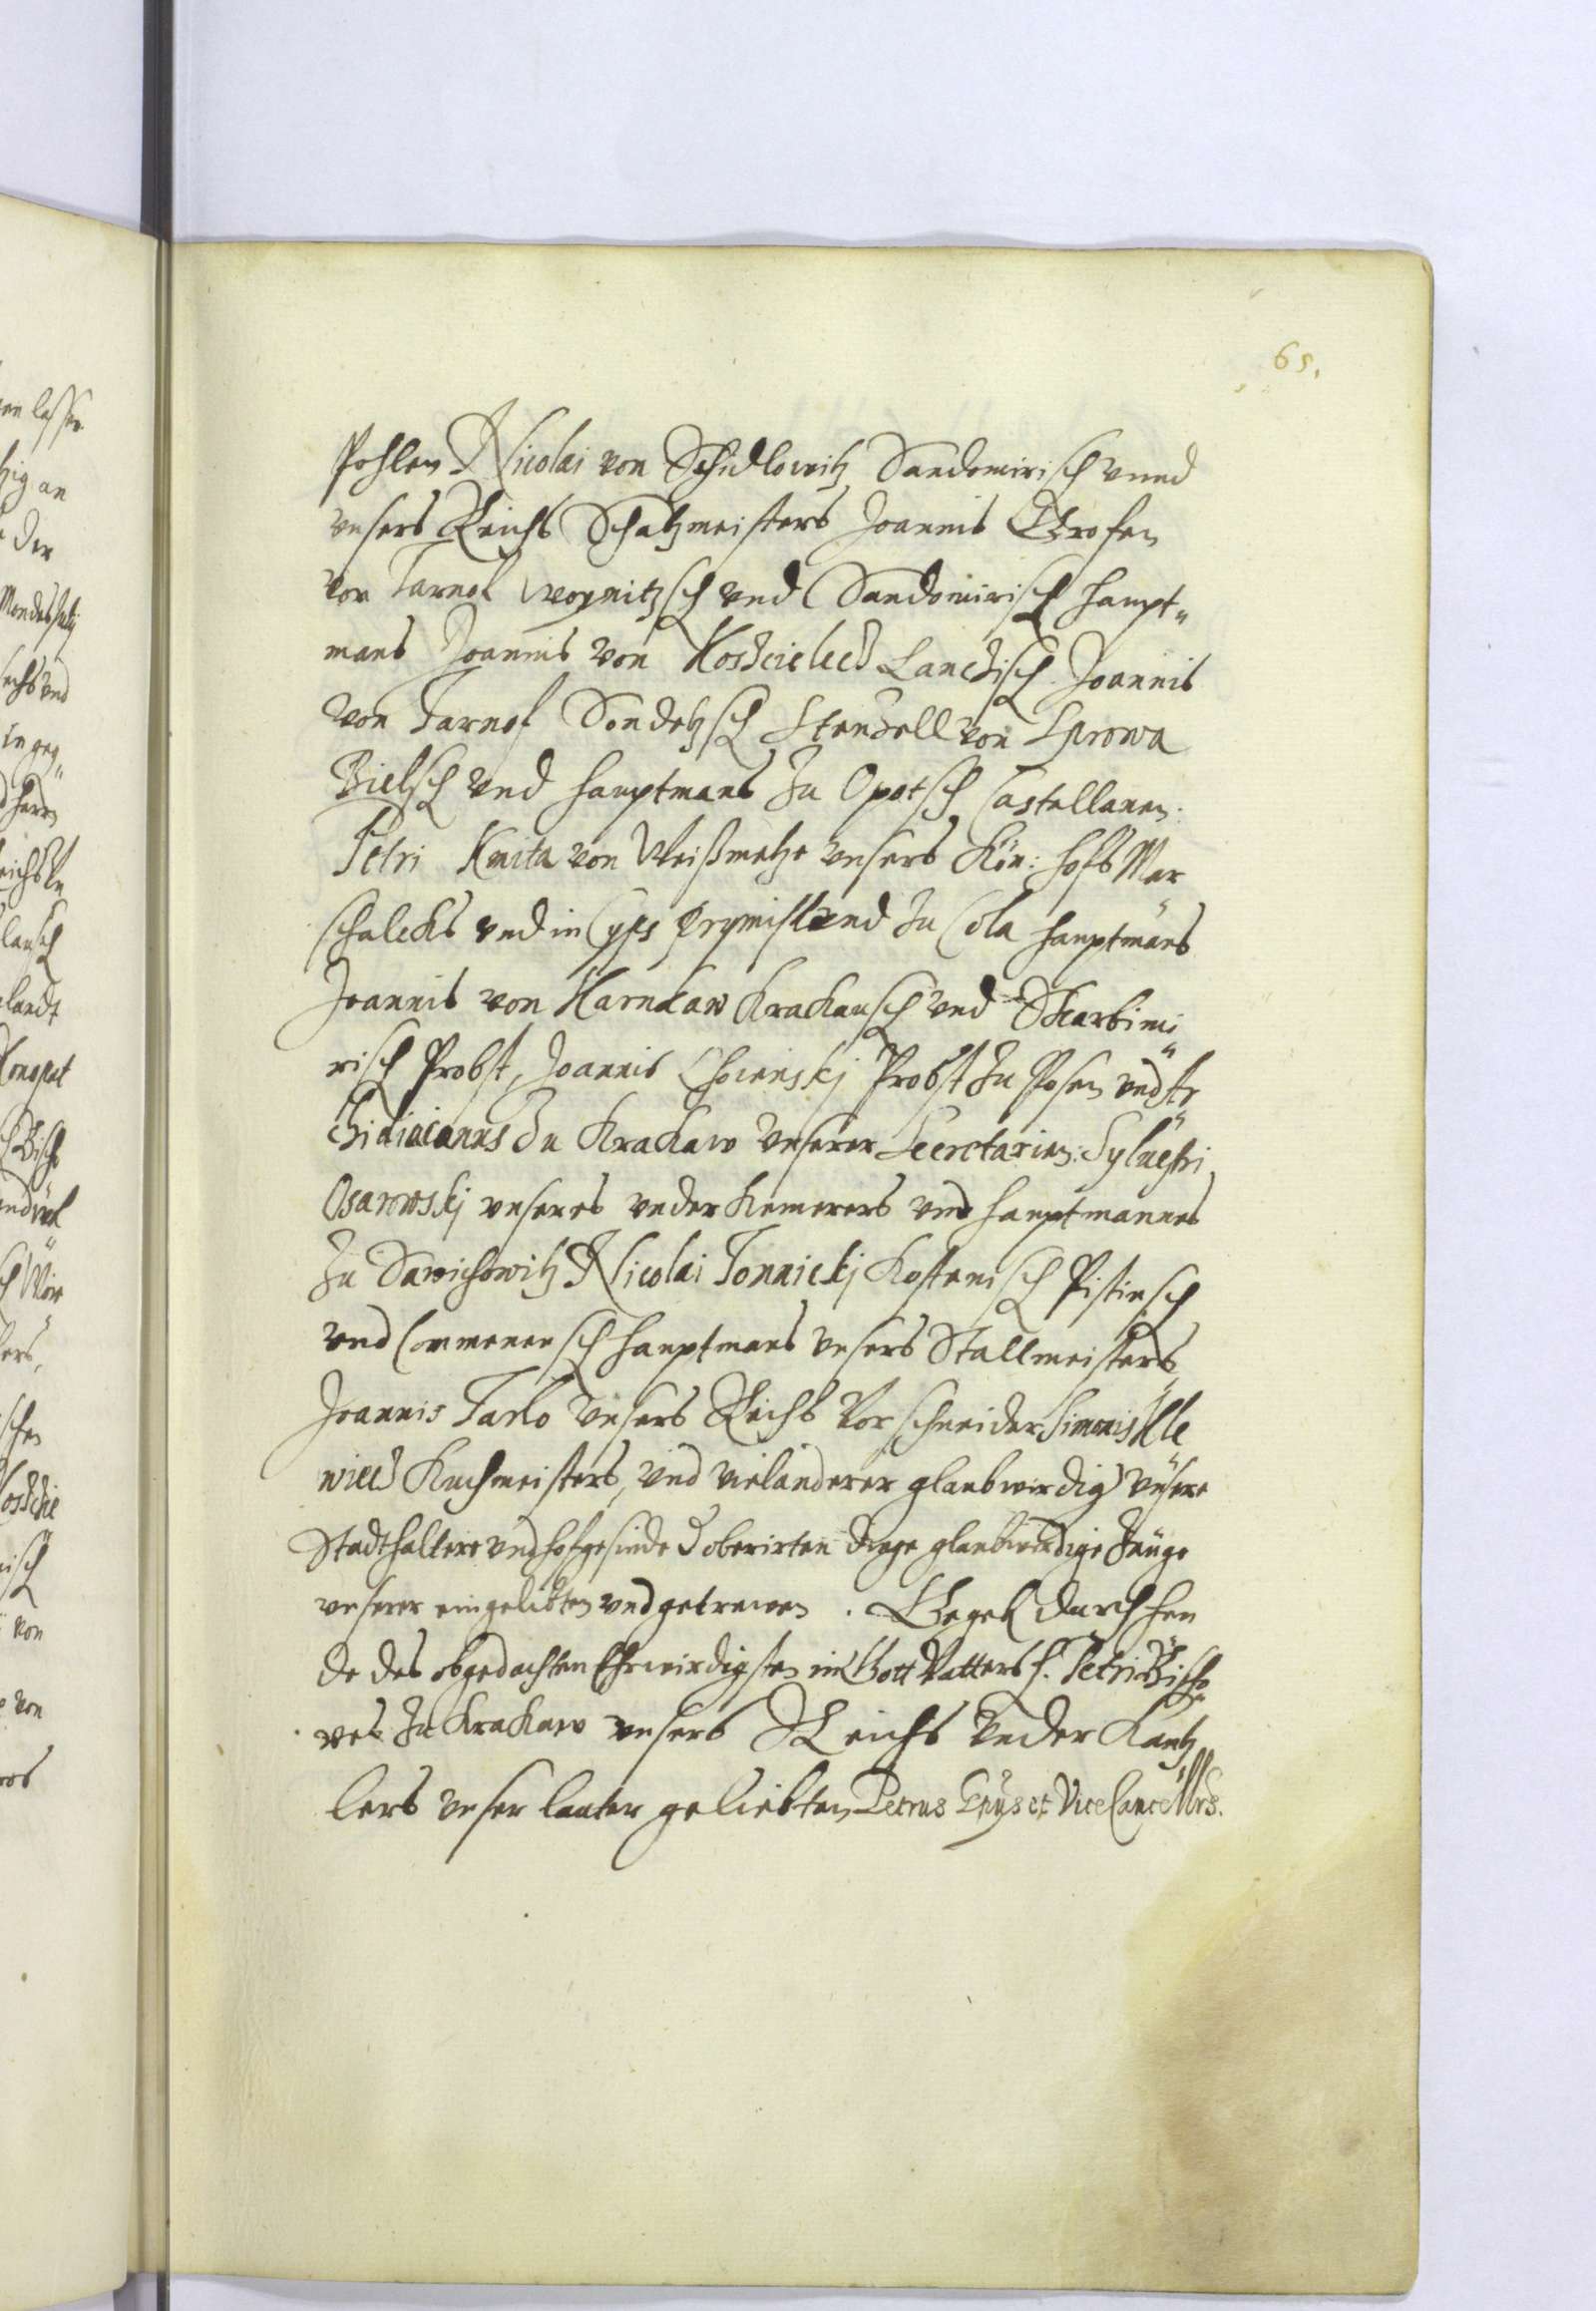 65.
Pohlen Nicolai von Schidlowitz Sandomirisch vnnd
vnsers Reichs Schatzmeisters Joannis Grofen
von Tarnof woynitzsch vnd Sandomirisch haupt„
mans Joannis von Kosczieletz Lanczisch Joannis
von Tarnof Sondetzsch Stenzell von Sprowa
Bielsch vnd hauptmans Zu Opotsch Castellanen:
Petri Kmita von Weißmetze vnsers Kön: hofs Mar„
schalcks vnd in Cyps Prymißl vnd Zu Cola hauptmans
Joannis von Karnkaw Krakausch vnd Skarbimi„
risch Probst, Joannis Choienskj Probst Zu Posen vnd Ar„
chidiaconus Zu Krakaw vnserer Secretarien: Syluestri
Osarowskj vnseres vnder Kemerers vnd hauptmannes
Zu Sawichowitz Nicolai Tomnickj Kostenisch Pistinsch
vnd Commenensch hauptmans vnsers Stallmeisters,
Joannis Tarlo vnsers Reichs Vorschneider Simonis Kle„
Kuchmeisters, vnd viel anderer glaubwirdig vnsere
Stadthaltere vnd hofgesinde oberirten dinge glaubwirdige Zeuge
vnserer eingeliebten vnd getrewen. Gegeb durch hen
de des obgedachten Ehrwirdigsten in Gott Vatters h. Petri Bischo„
ves Zu Krakaw vnsers Reichs vnder Kantz„
lers vnser lauter geliebten Petrus Epus et Vice Cancellrs.